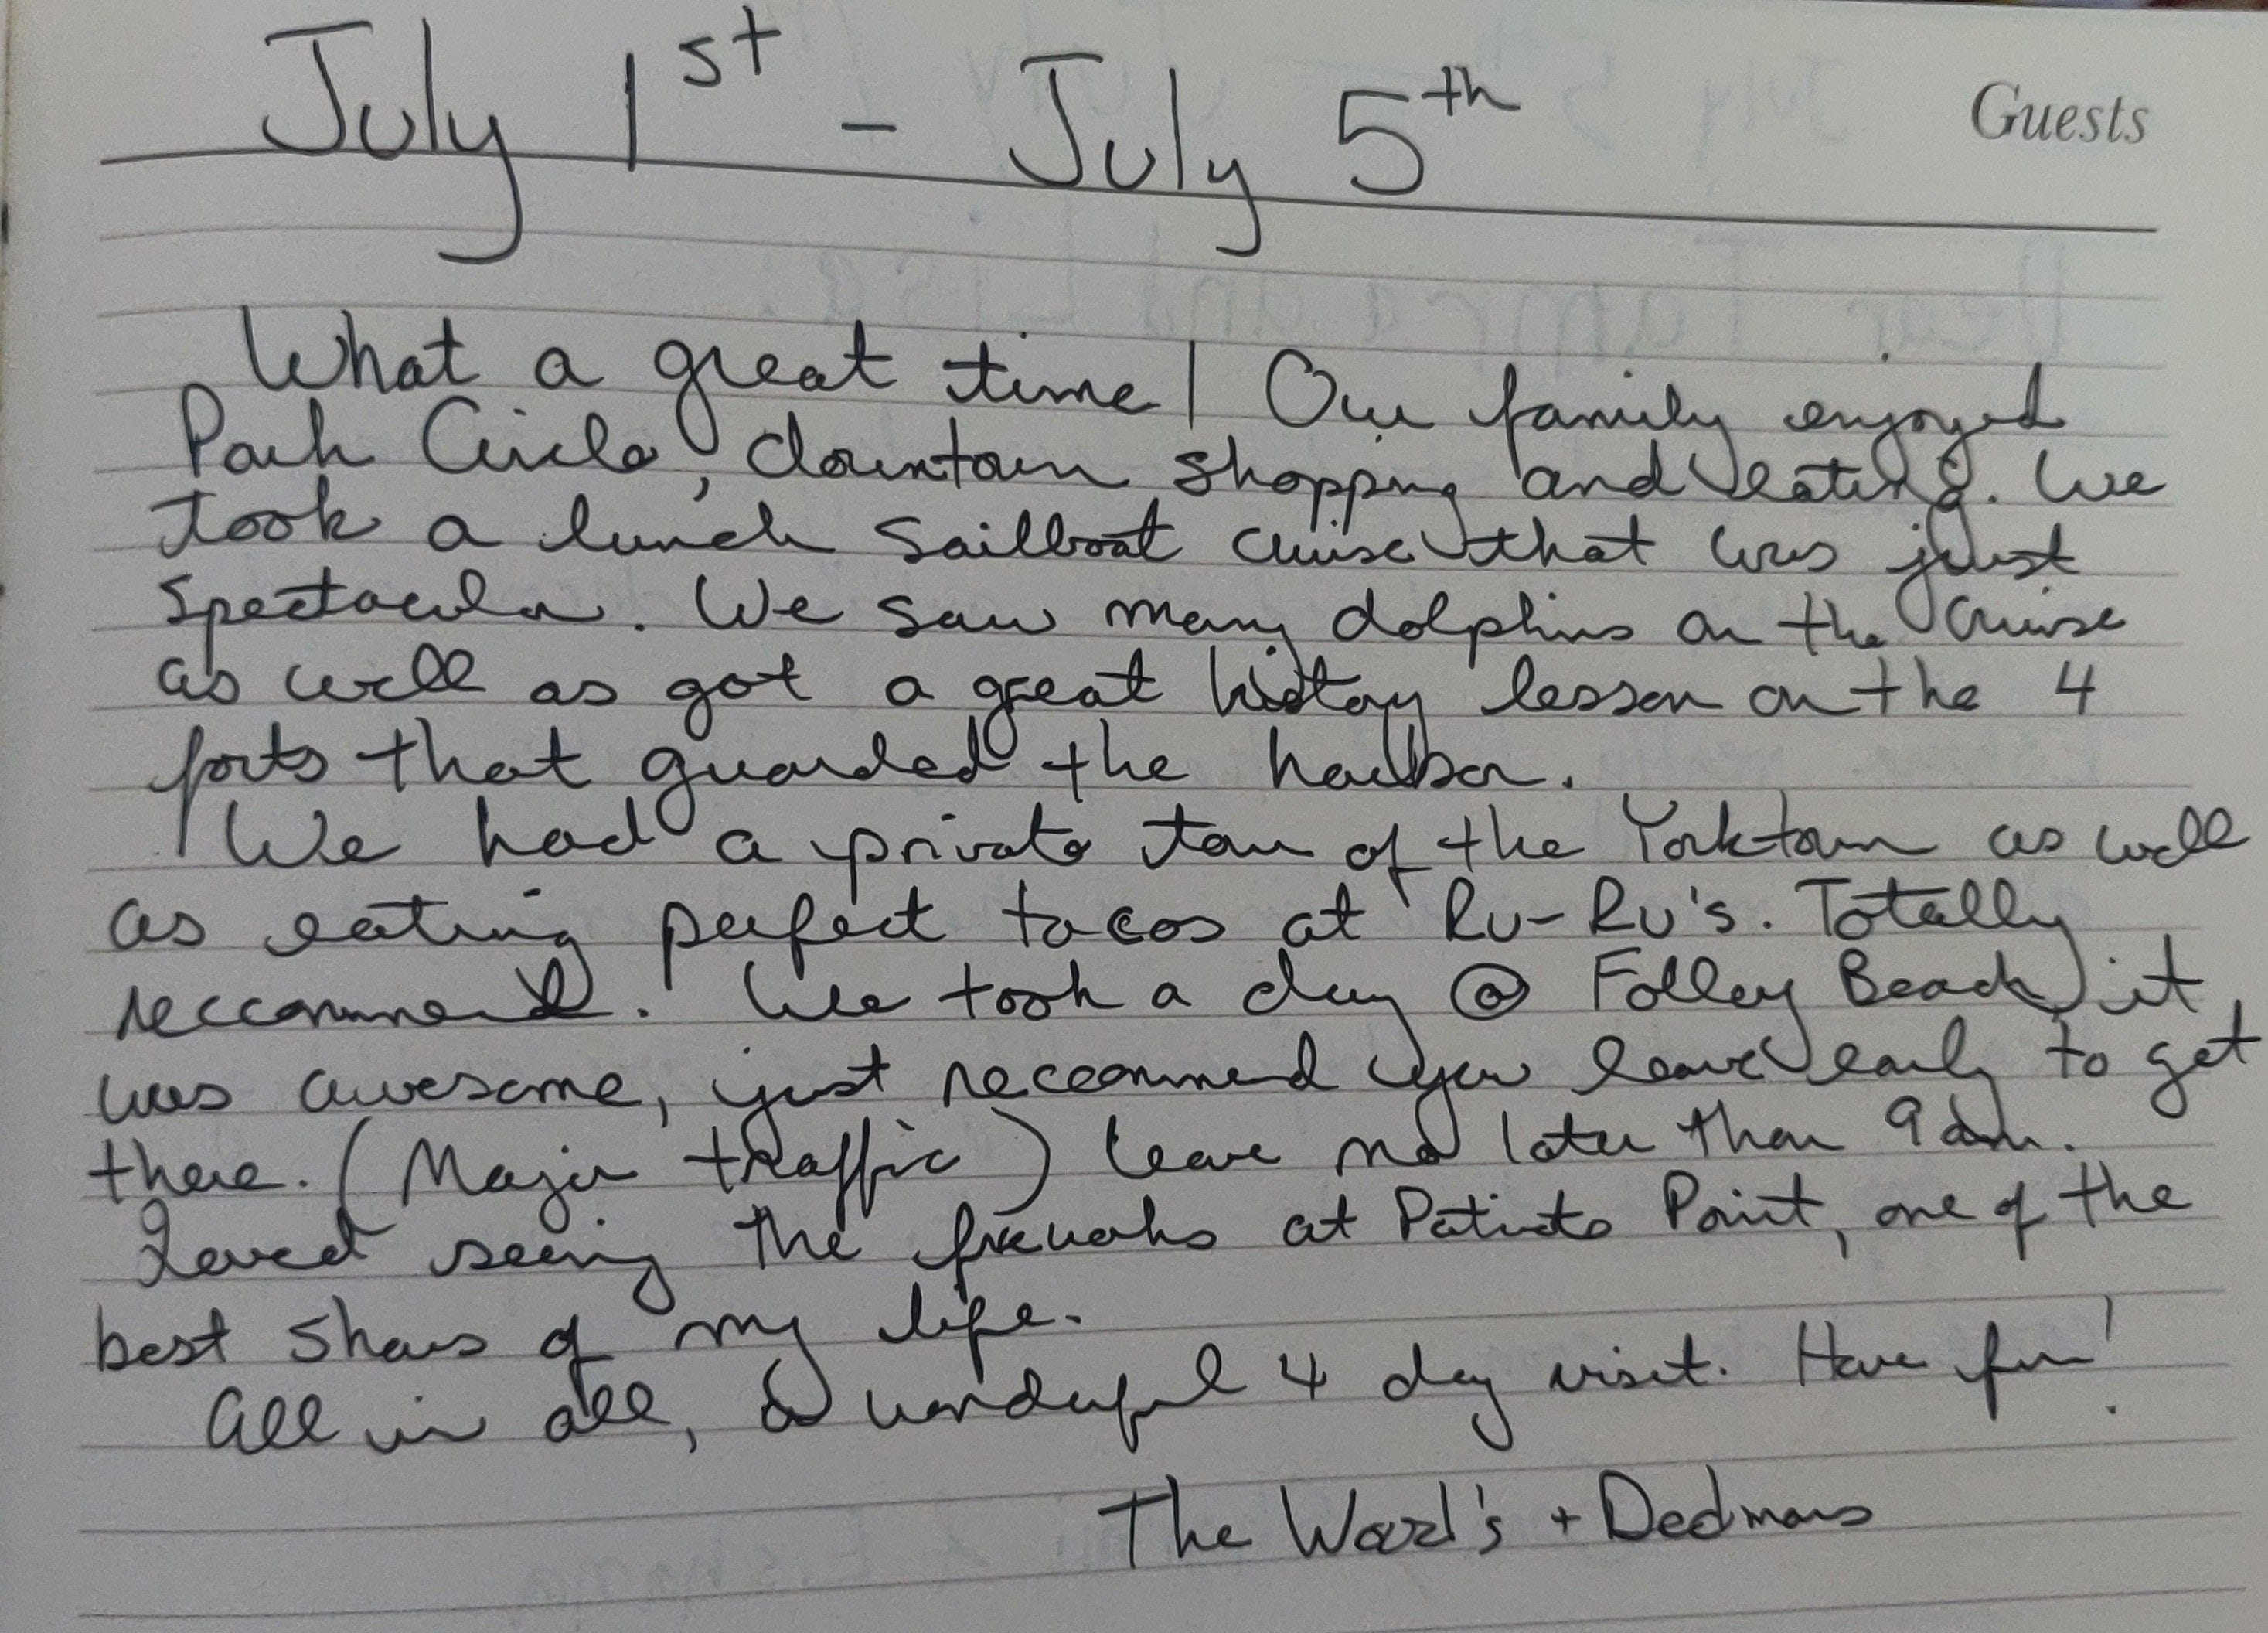 July 1st - July 5th
Guests
What a great time! Our family enjoyed
Park Circle, downtown shopping and eating. We
took a lunch sailboat cruise that was just
spectacular. We saw many dolphins on the cruise
as well as got a great history lesson on the 4
forts that guarded the harbor.
We had a private tour of the Yorktown as well
as eating perfect tacos at Ru-Ru's. Totally
reccommend. We took a day @ Folley Beach, it
was awesome, just reccommend you leave early to get
there. (Major traffic) leave no later than 9 am.
Loved seeing the fireworks at Patriots Point, one of the
best shows of my life.
All in all, a wonderful 4 day visit. Have fun!
The Ward's + Dedmans